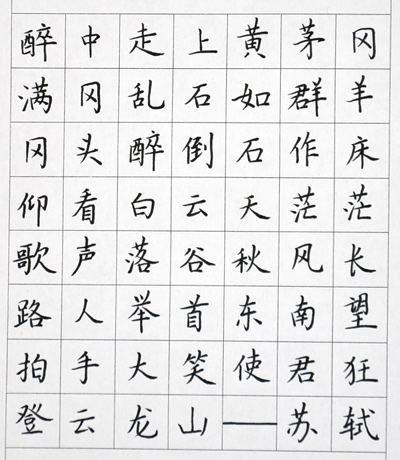 醉中走上黄茅冈
满冈乱石如群羊
冈头醉倒石作床
仰看白云天茫茫
歌声落谷秋风长
路人举首东南望
拍手大笑使君狂
登云龙山——苏轼